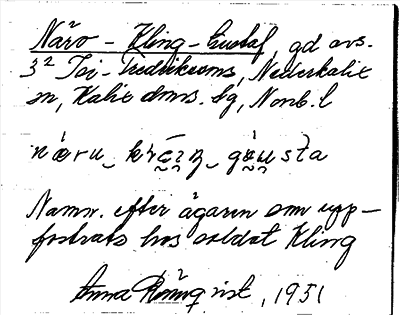 Näro - Kling-Gustaf, gd avs.
3² Joi-Fredriksons, Nederkalix
sn, Kalix dms. tg, Nonb. l
näru_ kräiŋ_ gäusta
Namn. efter ägaren som upp-
fostrats hos soldat Kling
Anna Rönnqvist, 1931